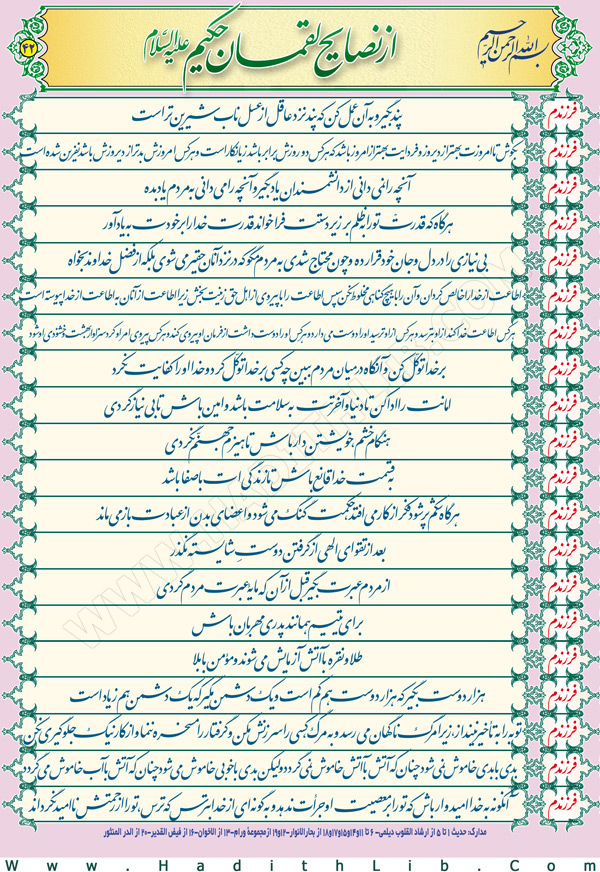 بسم الله الرحمن الرحیم
از نصایح لقمان حکیم علیه السلام
۴۲
فرزندم پند بگیر و به آن عمل کن که پند نزد عاقل از عسل ناب شیرین تر است
فرزندم بکوش تا امروزت بهتر از دیروز و فردایت بهتر از امروز باشد که هر کس دو روزش برابر باشد زیانکار است و هر کس امروزش بدتر از دیروزش باشد نفرین شده است
فرزندم آنچه را نمی دانی از دانشمندان یاد بگیر و آنچه را می دانی به مردم یاد بده
فرزندم هرگاه که قدرت تو را به ظلم بر زیر دستت فرا خواند قدرت خدا را بر خودت به یاد آور
فرزندم بی نیازی را در دل و جان خود قرار ده و چون محتاج شدی به مردم مگو که در نزد آنان حقیر می شوی بلکه از فضل خداوند بخواه
فرزندم اطاعت از خدا را خالص گردان و آن را با هیچ گناهی مخلوط نکن پس اطاعت را با پیروی از اهل حق زینت بخش زیرا اطاعت از آنان به اطاعت از خدا پیوسته است
فرزندم هر کس اطاعت خدا کند از او بترسد و هر کس از او ترسید او را دوست می دارد و هر کس او را دوست داشت از فرمان او پیروی کند و هر کس پیروی امر او کرد سزاوار بهشت و خشنودی او شود
فرزندم بر خدا توکل کن و آنگاه در میان مردم ببین چه کسی بر خدا توکل کرد و خدا او را کفایت نکرد
فرزندم امانت را ادا کن تا دنیا و آخرتت به سلامت باشد و امین باش تا بی نیاز گردی
فرزندم هنگام خشم خویشتن دار باش تا هیزم جهنم نگردی
فرزندم به قسمت خدا قانع باش تا زندگی ات با صفا باشد
فرزندم هرگاه شکم پر شود فکر از کار می افتد حکمت گنگ می شود و اعضای بدن از عبادت باز می ماند
فرزندم بعد از تقوای الهی از گرفتن دوست شایسته نگذر
فرزندم از مردم عبرت بگیر قبل از آن که مایه عبرت مردم گردی
فرزندم برای یتیم همانند پدری مهربان باش
فرزندم طلا و نقره با آتش آزمایش می شوند و مؤمن با بلا
فرزندم هزار دوست بگیر که هزار دوست هم کم است و یک دشمن مگیر که یک دشمن هم زیاد است
فرزندم توبه را به تأخیر مینداز زیرا مرگ ناگهان می رسد و به مرگ کسی را سرزنش مکن و گرفتار را مسخره ننما و از کار نیک جلوگیری نکن
فرزندم بدی با بدی خاموش نمی شود چنان که آتش با آتش خاموش نمی گردد ولیکن بدی با خوبی خاموش می شود چنان که آتش با آب خاموش می گردد
فرزندم آنگونه به خدا امیدوار باش که تو را بر معصیت او جرأت ندهد و به گونه ای از خدا بترس که ترس، تو را از رحمتش نا امید نگرداند
مدارک: حدیث ۱ تا ۵ از ارشاد القلوب دیلمی- ۶ تا ۱۱و۱۴و۱۵و۱۷و۱۸ از بحارالانوار- ۱۲و۱۹ ازمجموعۀ ورام- ۱۳ از الاخوان- ۱۶ از فیض القدیر- ۲۰ از الدر المنثور
www.HadithLib.Com